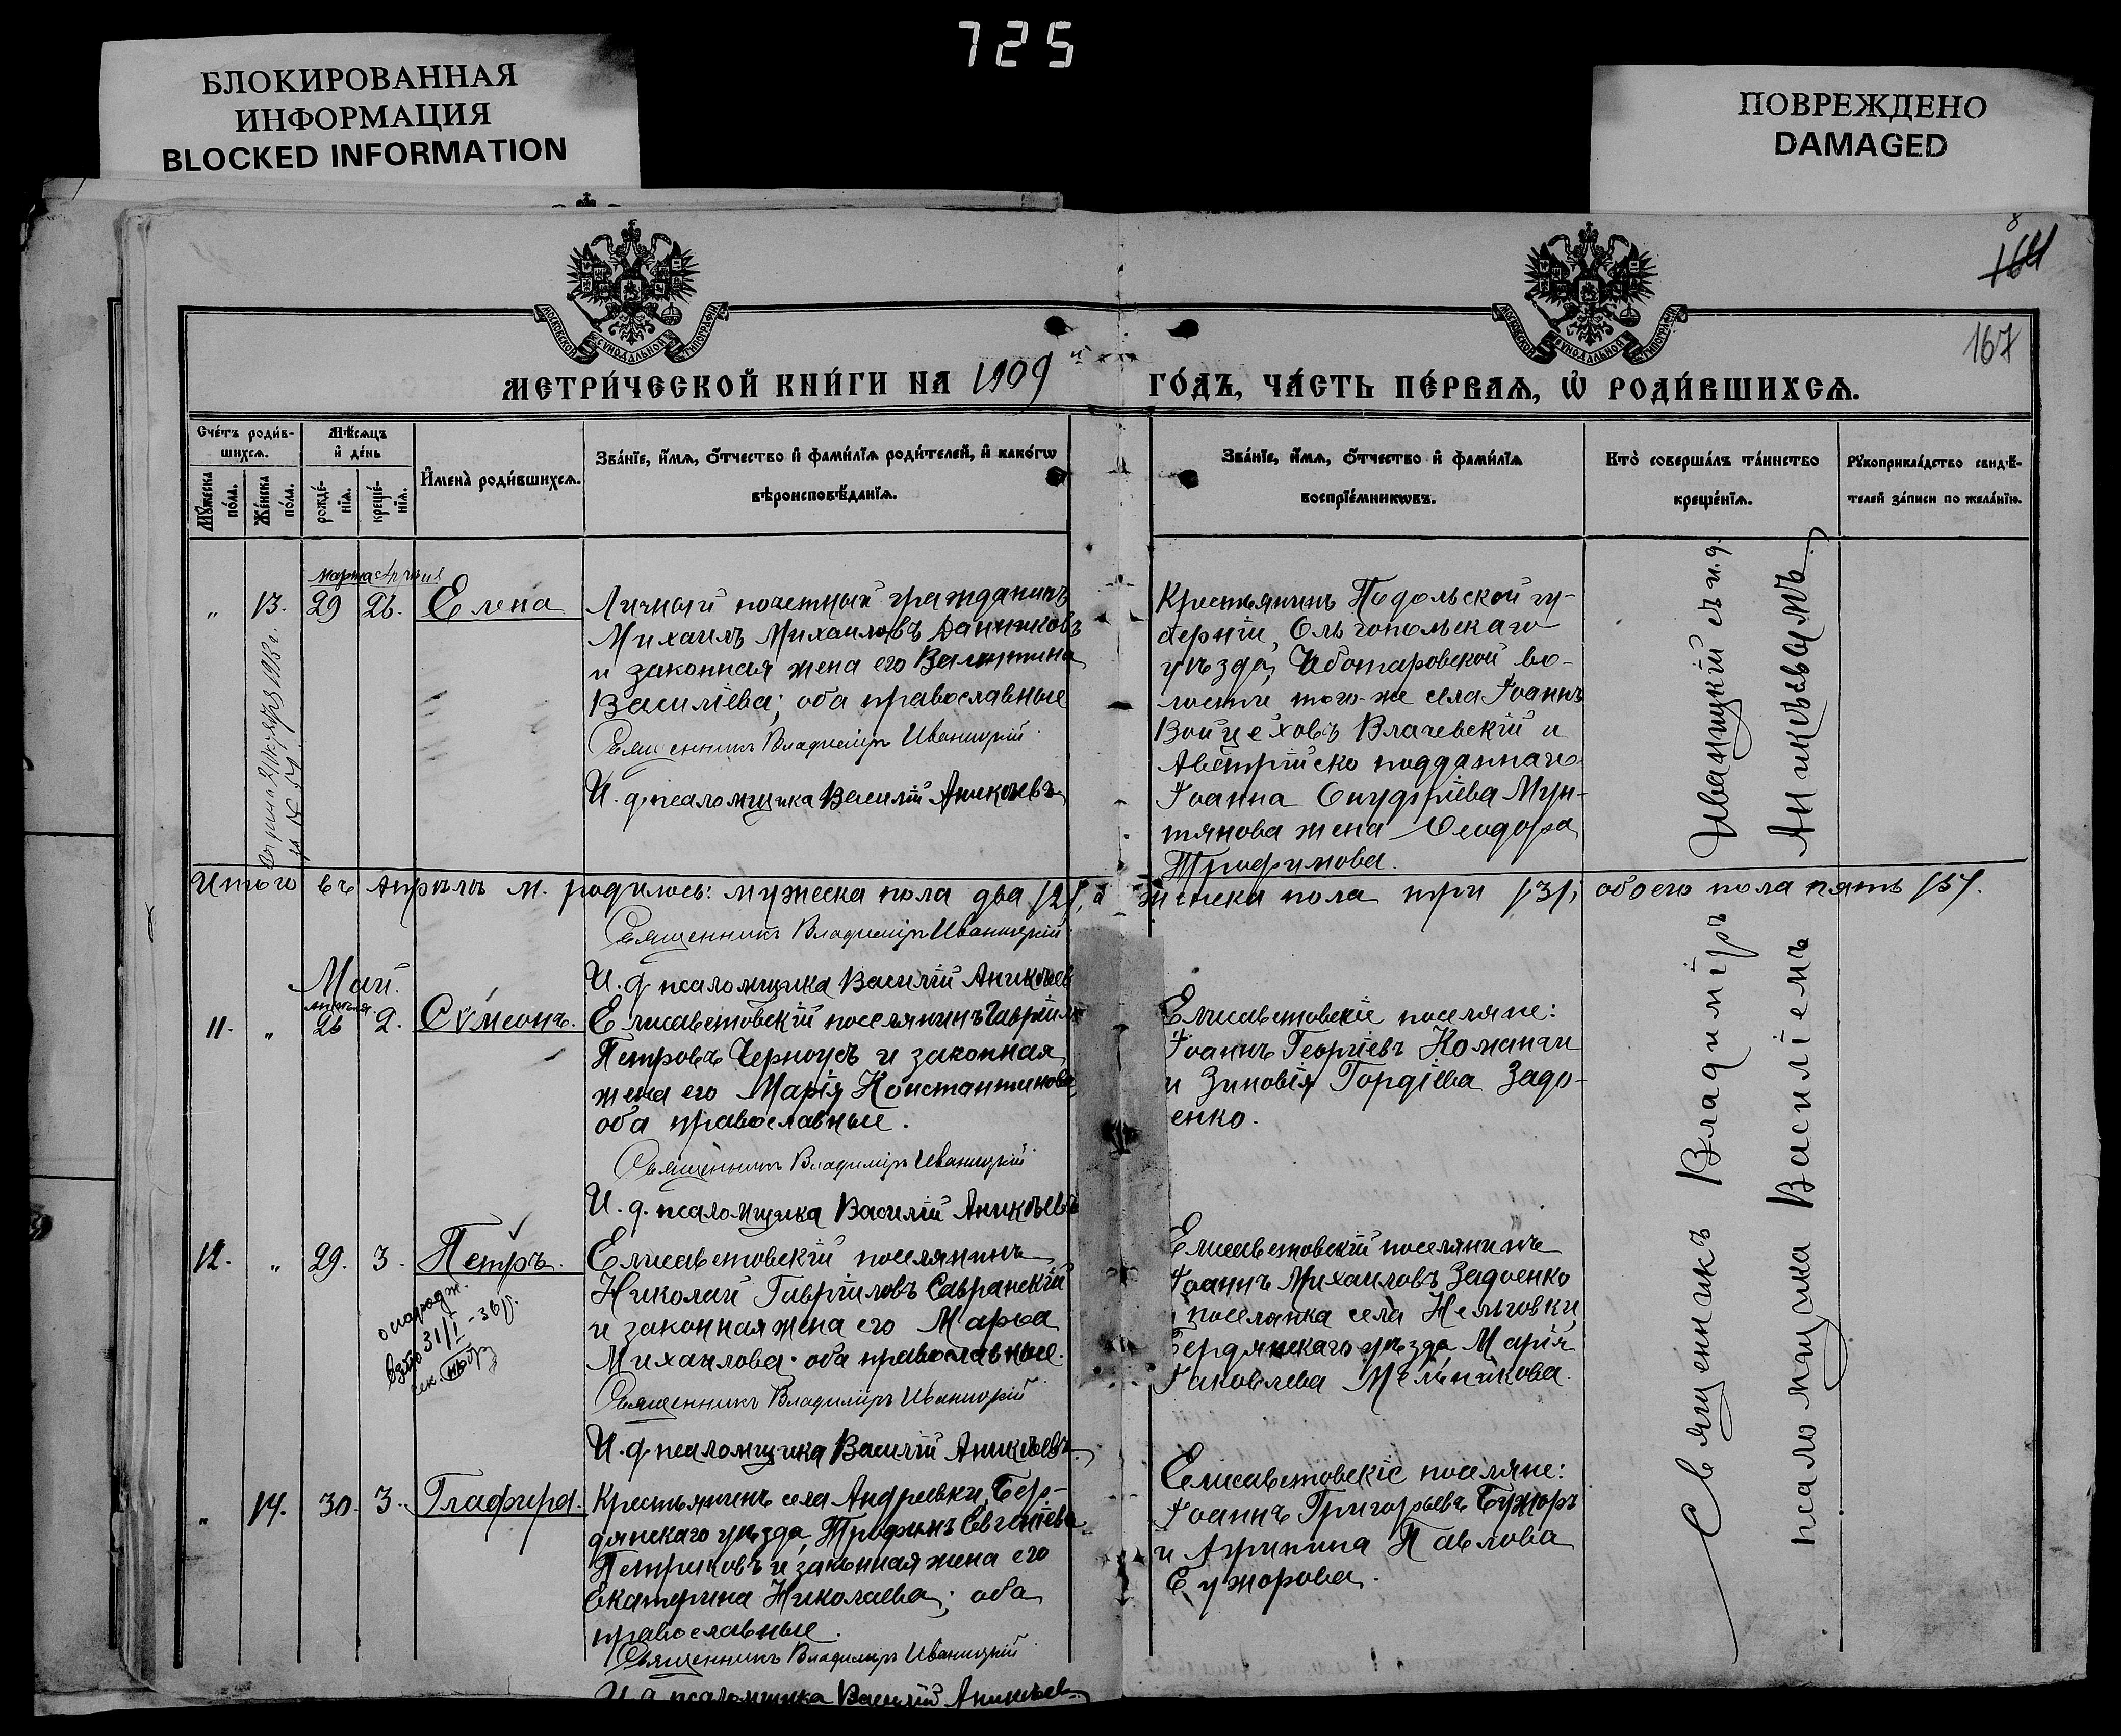 725
БЛОКИРОВАННАЯ
ИНФОРМАЦИЯ
BLOCKED INFORMATION
ПОВРЕЖДЕНО
DAMAGED
8
164
167
МОСКОВСКОЙ СУНОДАЛЬНОЙ ТИПОГРАФІИ
МОСКОВСКОЙ СУНОДАЛЬНОЙ ТИПОГРАФІИ
МЕТРИ́ЧЕСКОЙ КНИ́ГИ НА 1909 ГО́ДЪ, ЧА́СТЬ ПЕ́РВАѦ, Ѡ҆ РОДИ́ВШИХСѦ.
Сче́тъ роди́в-
шихсѧ.
Мꙋ́жеска по́ла.
Же́нска по́ла.
Мѣ́сѧцъ
и҆ де́нь
рожде́-
нїѧ.
креще́-
нїѧ.
И҆мена̀ роди́вшихсѧ.
Зва́нїе, и҆́мѧ, ѻ҆́тчество и҆ фами́лїѧ роди́телей, и҆ како́гѡ
вѣроисповѣ́данїѧ.
Зва́нїе, и҆́мѧ, ѻ҆́тчество и҆ фами́лїѧ
воспрїе́мникѡвъ.
Кто̀ соверша́лъ та́инство
креще́нїѧ.
Рꙋкоприкла́дство свидѣ́-
телей за́писи по жела́нїю.
марта апрѣля
„ 13. 29 26. Елена
Личный почетный гражданинъ
Михаилъ Михаиловъ Данниковъ
и законная жена его Валентина
Василіева; оба православные
Священникъ Владиміръ Иваницкій
И. д. псаломщика Василій Аникѣевъ
Крестьянинъ Подольской гу-
берніи, Ольгопольскаго
уѣзда, Чботаровской во-
лости того-же села Іоаннъ
Войцеховъ Влачевскій и
Австрійско подданнаго
Іоанна Онуфріева Мун-
тянова жена Ѳеодора
Трофимова.
Итого въ Апрѣлѣ м. родилось: мужеска пола два /2/, а женска пола три /3/; обоего пола пять /5/.
Священникъ Владиміръ Иваницкій
И. д. псаломщика Василій Аникѣевъ
Май.
апрѣля.
11. „ 26 2. Сѵмеонъ.
Елисаветовскій поселянинъ Гавріилъ
Петровъ Черноусъ и законная
жена его Марія Константинова
оба православные.
Священникъ Владиміръ Иваницкій
И. д. псаломщика Василій Аникѣевъ
Елисаветовскіе поселяне:
Іоаннъ Георгіевъ Команчи
и Зиновія Гордіева Задо-
енко.
12. „ 29. 3. Петръ.
о нарожд.
взто 31/I - 36 р.
сек.
Елисаветовскій поселянинъ
Николай Гавріиловъ Савранскій
и законная жена его Марѳа
Михаилова; оба православные.
Священникъ Владиміръ Иваницкій
И. д. псаломщика Василій Аникѣевъ
Елисаветовскій поселянинъ
Іоаннъ Михаиловъ Задоенко
поселянка села Нельговки,
Бердянскаго уѣзда Марія
Іаковлева Мельникова.
„ 14. 30. 3. Глафира.
Крестьянинъ села Андреевки, Бер-
дянскаго уѣзда, Трофимъ Евгеніевъ
Петриковъ и законная жена его
Екатерина Николаева; оба
православные.
Священникъ Владиміръ Иваницкій
И. д. псаломщика Василій Аникѣевъ
Елисаветовскіе поселяне:
Іоаннъ Григорьевъ Бужоръ
и Агрипина Павлова
Бужорова.
Священникъ Владиміръ Иваницкій съ и. д.
псаломщика Василіемъ Аникѣевымъ.